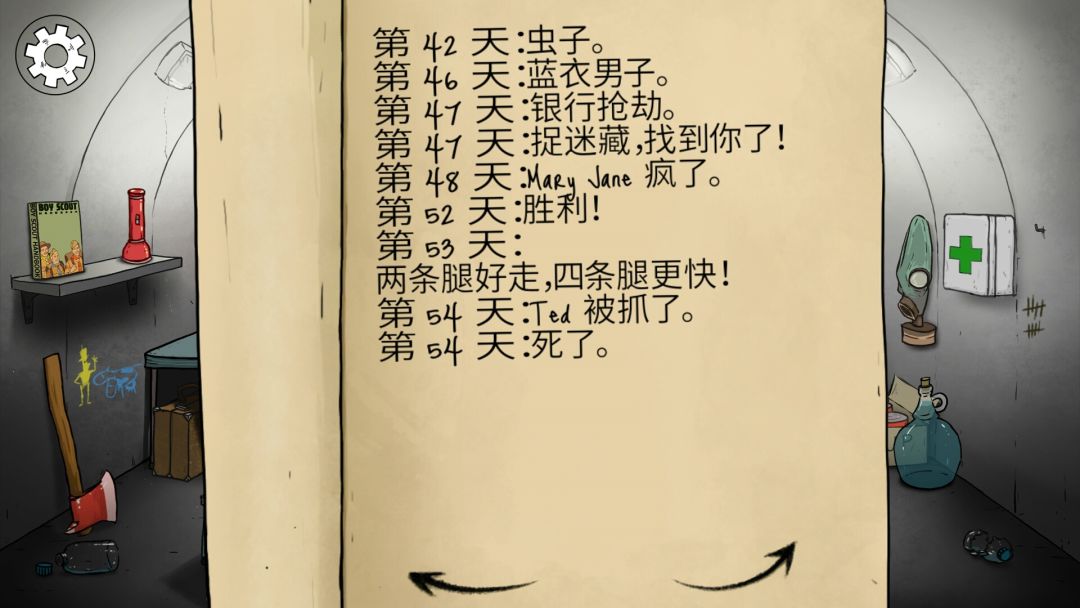 第 42 天:虫子。
第 46 天:蓝衣男子。
第 47 天:银行抢劫。
第 47 天:捉迷藏,找到你了!
第 48 天:Mary Jane 疯了。
第 52 天:胜利!
第 53 天:
两条腿好走,四条腿更快!
第 54 天:Ted 被抓了。
第 54 天:死了。
BOY SCOUT
BOY SCOUT HANDBOOK